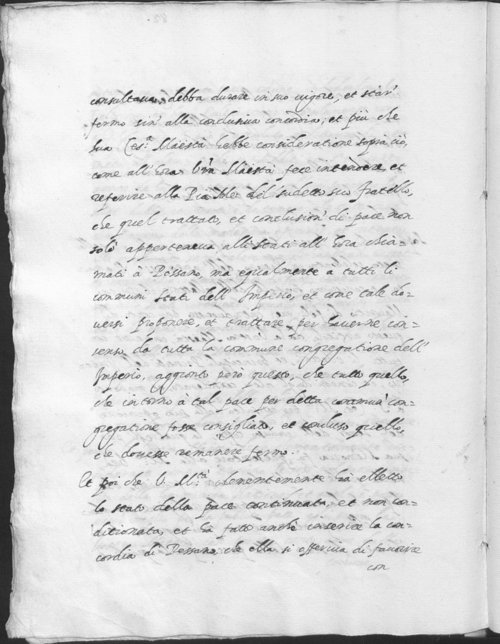 consultava debba durare in suo vigore, et star'
fermo sin' alla conclusiva concordia, et più che
sua Ces.ª Maestà hebbe consideratione sopra ciò,
come all' hora V'ra Maestà fece intendere et
referire alla del sudetto suo fratello,
che quel trattato, et conclusion' di pace non
solo apparteneva alli stati all' hora chia-
mati à Possano, ma egualmente a tutti li
communi stati dell' Imperio, et come tale do-
versi proponere, et trattare per haverne con-
senso da tutta la commune congregatione dell'
Imperio, aggionto però questo, che tutto quello,
che intorno à tal pace per detta commun' con-
gregatione fosse consigliato, et concluso quello,
che dovesse remanere fermo.
Et poi che V. M.tà clementemente hà eletto
lo stato della pace continuata, et non con-
ditionata, et hà fatto anche inserire la con-
cordia di Possano che ella si offeriva di favorire
con